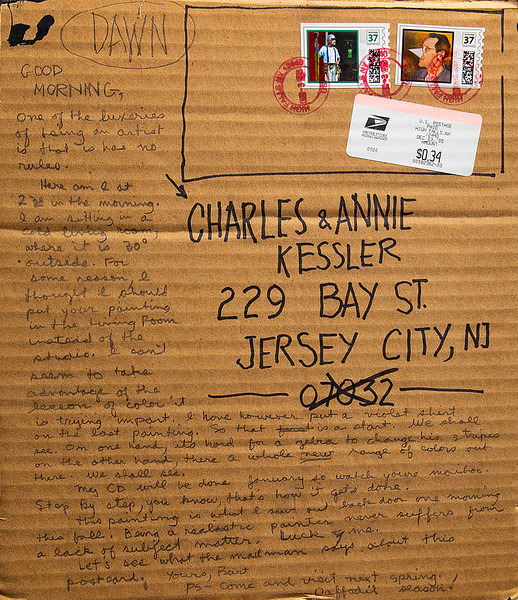 DAWN
GOOD
MORNING,
One of the luxeries
of being an artist
is that is has no
rules.
Here am I at
2 30 in the morning.
I am sitting in a
cold living room,
where it is 30°
outside. For
some reason, I
thought I should
put your painting
in the Living Room
instead of the
studio. I can't
seem to take
advantage of the
lesson of color it
is trying impart. I have however put a violet shirt
on the last painting. So that is a start. We shall
see. On one hand, its hard for a zebra to change his stripes
on the other hand, there a whole new range of colors out
there. We shall see.
My CD will be done January so watch yours mailbox.
Step by step, you know, that's how it gets done.
This painting is what I saw out back door one morning
this fall. Being a realastic painter never suffers from
a lack of subject matter. Luck me.
Let's see what the mailman says about this
postcard. Yours, Bart
PS- Come and visit next spring.
Daffodil season!
37
37
UNITED STATES
POSTAL SERVICE
0000
U.S. POSTAGE
PAID
HIGH FALLS, NY
12440
DEC 03, 05
AMOUNT
$0.34
CHARLES & ANNIE
KESSLER
229 BAY ST.
JERSEY CITY, NJ
07032